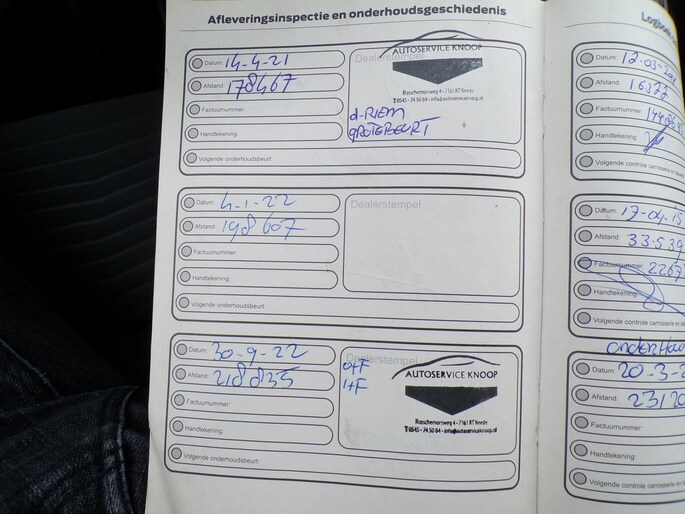 Afleveringsinspectie en onderhoudsgeschiedenis
Datum: 14-4-21
Afstand: 178467
Factuurnummer:
Handtekening:
Volgende onderhoudsbeurt:
Dealerstempel
AUTOSERVICE KNOOP
Russchemorsweg 4 - 7161 RT Neede
T 0545 - 74 50 84 - info@autoserviceknoop.nl
d-RIEM
GROTEBEURT
Datum: 4-1-22
Afstand: 198607
Factuurnummer:
Handtekening:
Volgende onderhoudsbeurt
Dealerstempel
Datum: 30-9-22
Afstand: 218835
Factuurnummer:
Handtekening:
Volgende onderhoudsbeurt:
Dealerstempel
O+F
I+F
AUTOSERVICE KNOOP
Russchemorsweg 4 - 7161 RT Neede
T 0545 - 74 50 84 - info@autoserviceknoop.nl
Datum:
Afstand:
Factuurnummer:
Handtekening:
Volgende controle carrosserie en
Datum: 17-04-15
Afstand: 33.539
Factuurnummer: 2267
Handtekening:
Volgende controle carrosserie en
Datum: 20-3-
Afstand: 23120
Factuurnummer:
Handtekening:
Volgende controle carrosserie en